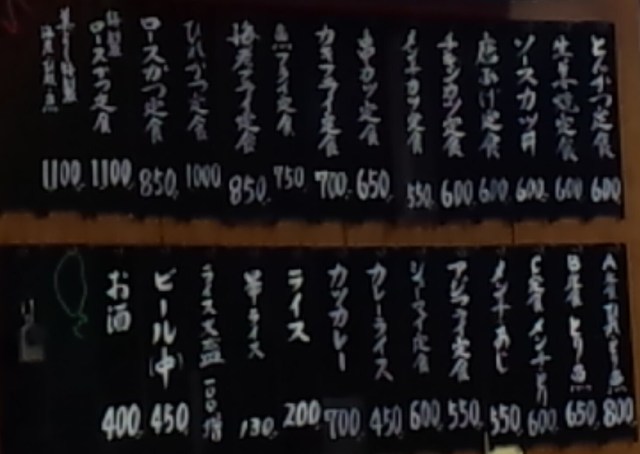 とんかつ定食 600
生姜焼定食 600
ソースカツ丼 600
唐あげ定食 600
チキンカツ定食 600
メンチカツ定食 550
串カツ定食 650
カキフライ定食 700
魚フライ定食 750
海老フライ定食 850
ひれかつ定食 1000
ロースかつ定食 850
特製ロースかつ定食 1100
1100
800
B定食 とり 魚 650
C定食 メンチ とり 600
メンチ あじ 550
アジフライ定食 550
シューマイ定食 600
カレーライス 450
カツカレー 700
ライス 200
半ライス 130
ライス大盛 100増
ビール(中) 450
お酒 400